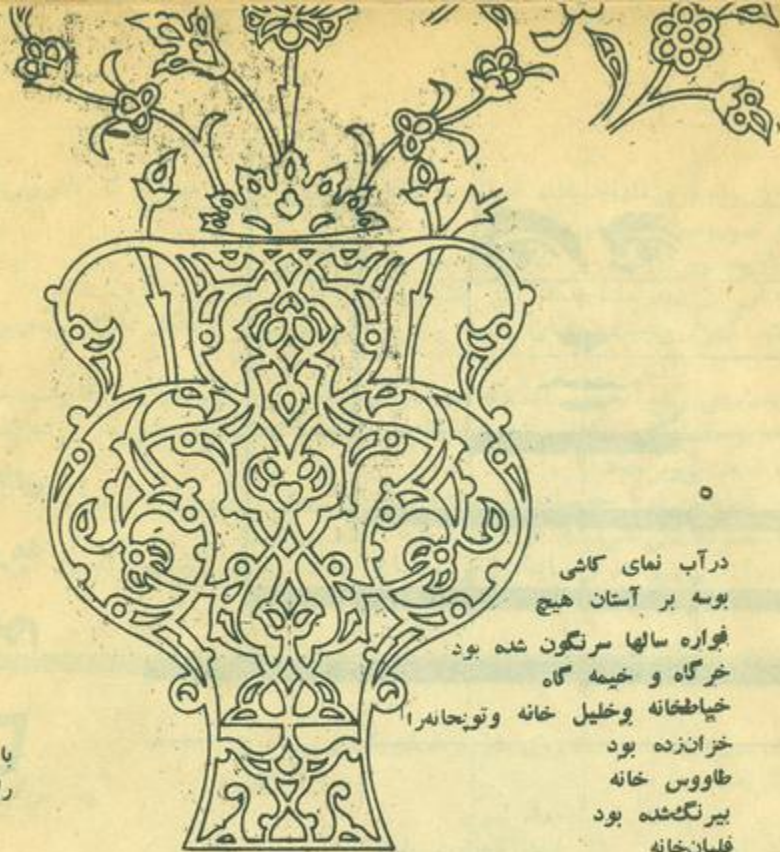 درآب نمای کاشی
بوسه بر آستان هیچ
فواره سالها سرنگون شده بود
خرگاه و خیمه گاه
خیاطخانه وخلیل خانه وتوپخانه‌را
خزان‌زده بود
طاووس خانه
بیرنگ‌شده بود
قلیان‌خانه
با